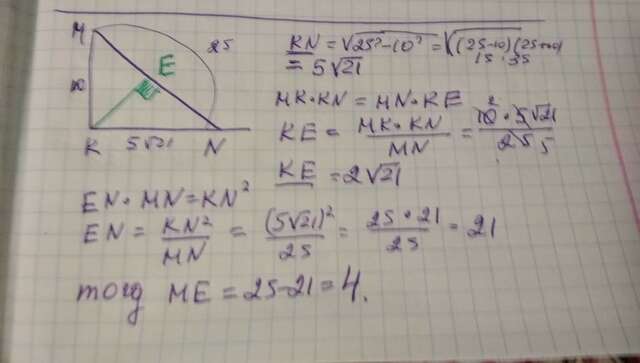 M
25
E
10
K 5√21 N
KN = √25²-10² = √(25-10)(25+10)
15 · 35
= 5√21
MK·KN = MN·KE
KE = MK·KN / MN = 10² · 5√21 / 25 5
KE = 2√21
EN · MN = KN²
EN = KN² / MN = (5√21)² / 25 = 25 · 21 / 25 = 21
тогд ME = 25-21 = 4.